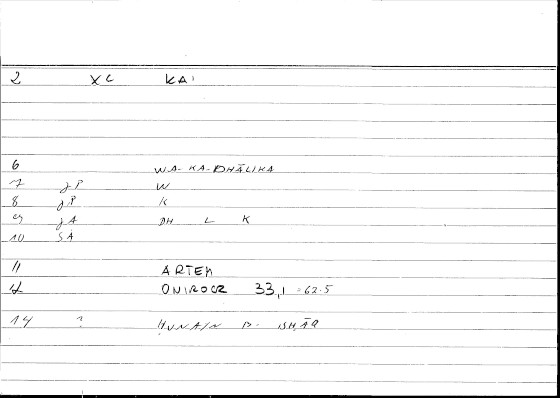 2 XC KA'
6 WA-KA-DHĀLIKA
7 JP W
8 JP K
9 JA DH L K
10 SA
11 ARTEM
12 ONIROCR 33,1 = 62.5
14 ? ḤUNAIN B. ISḤĀQ